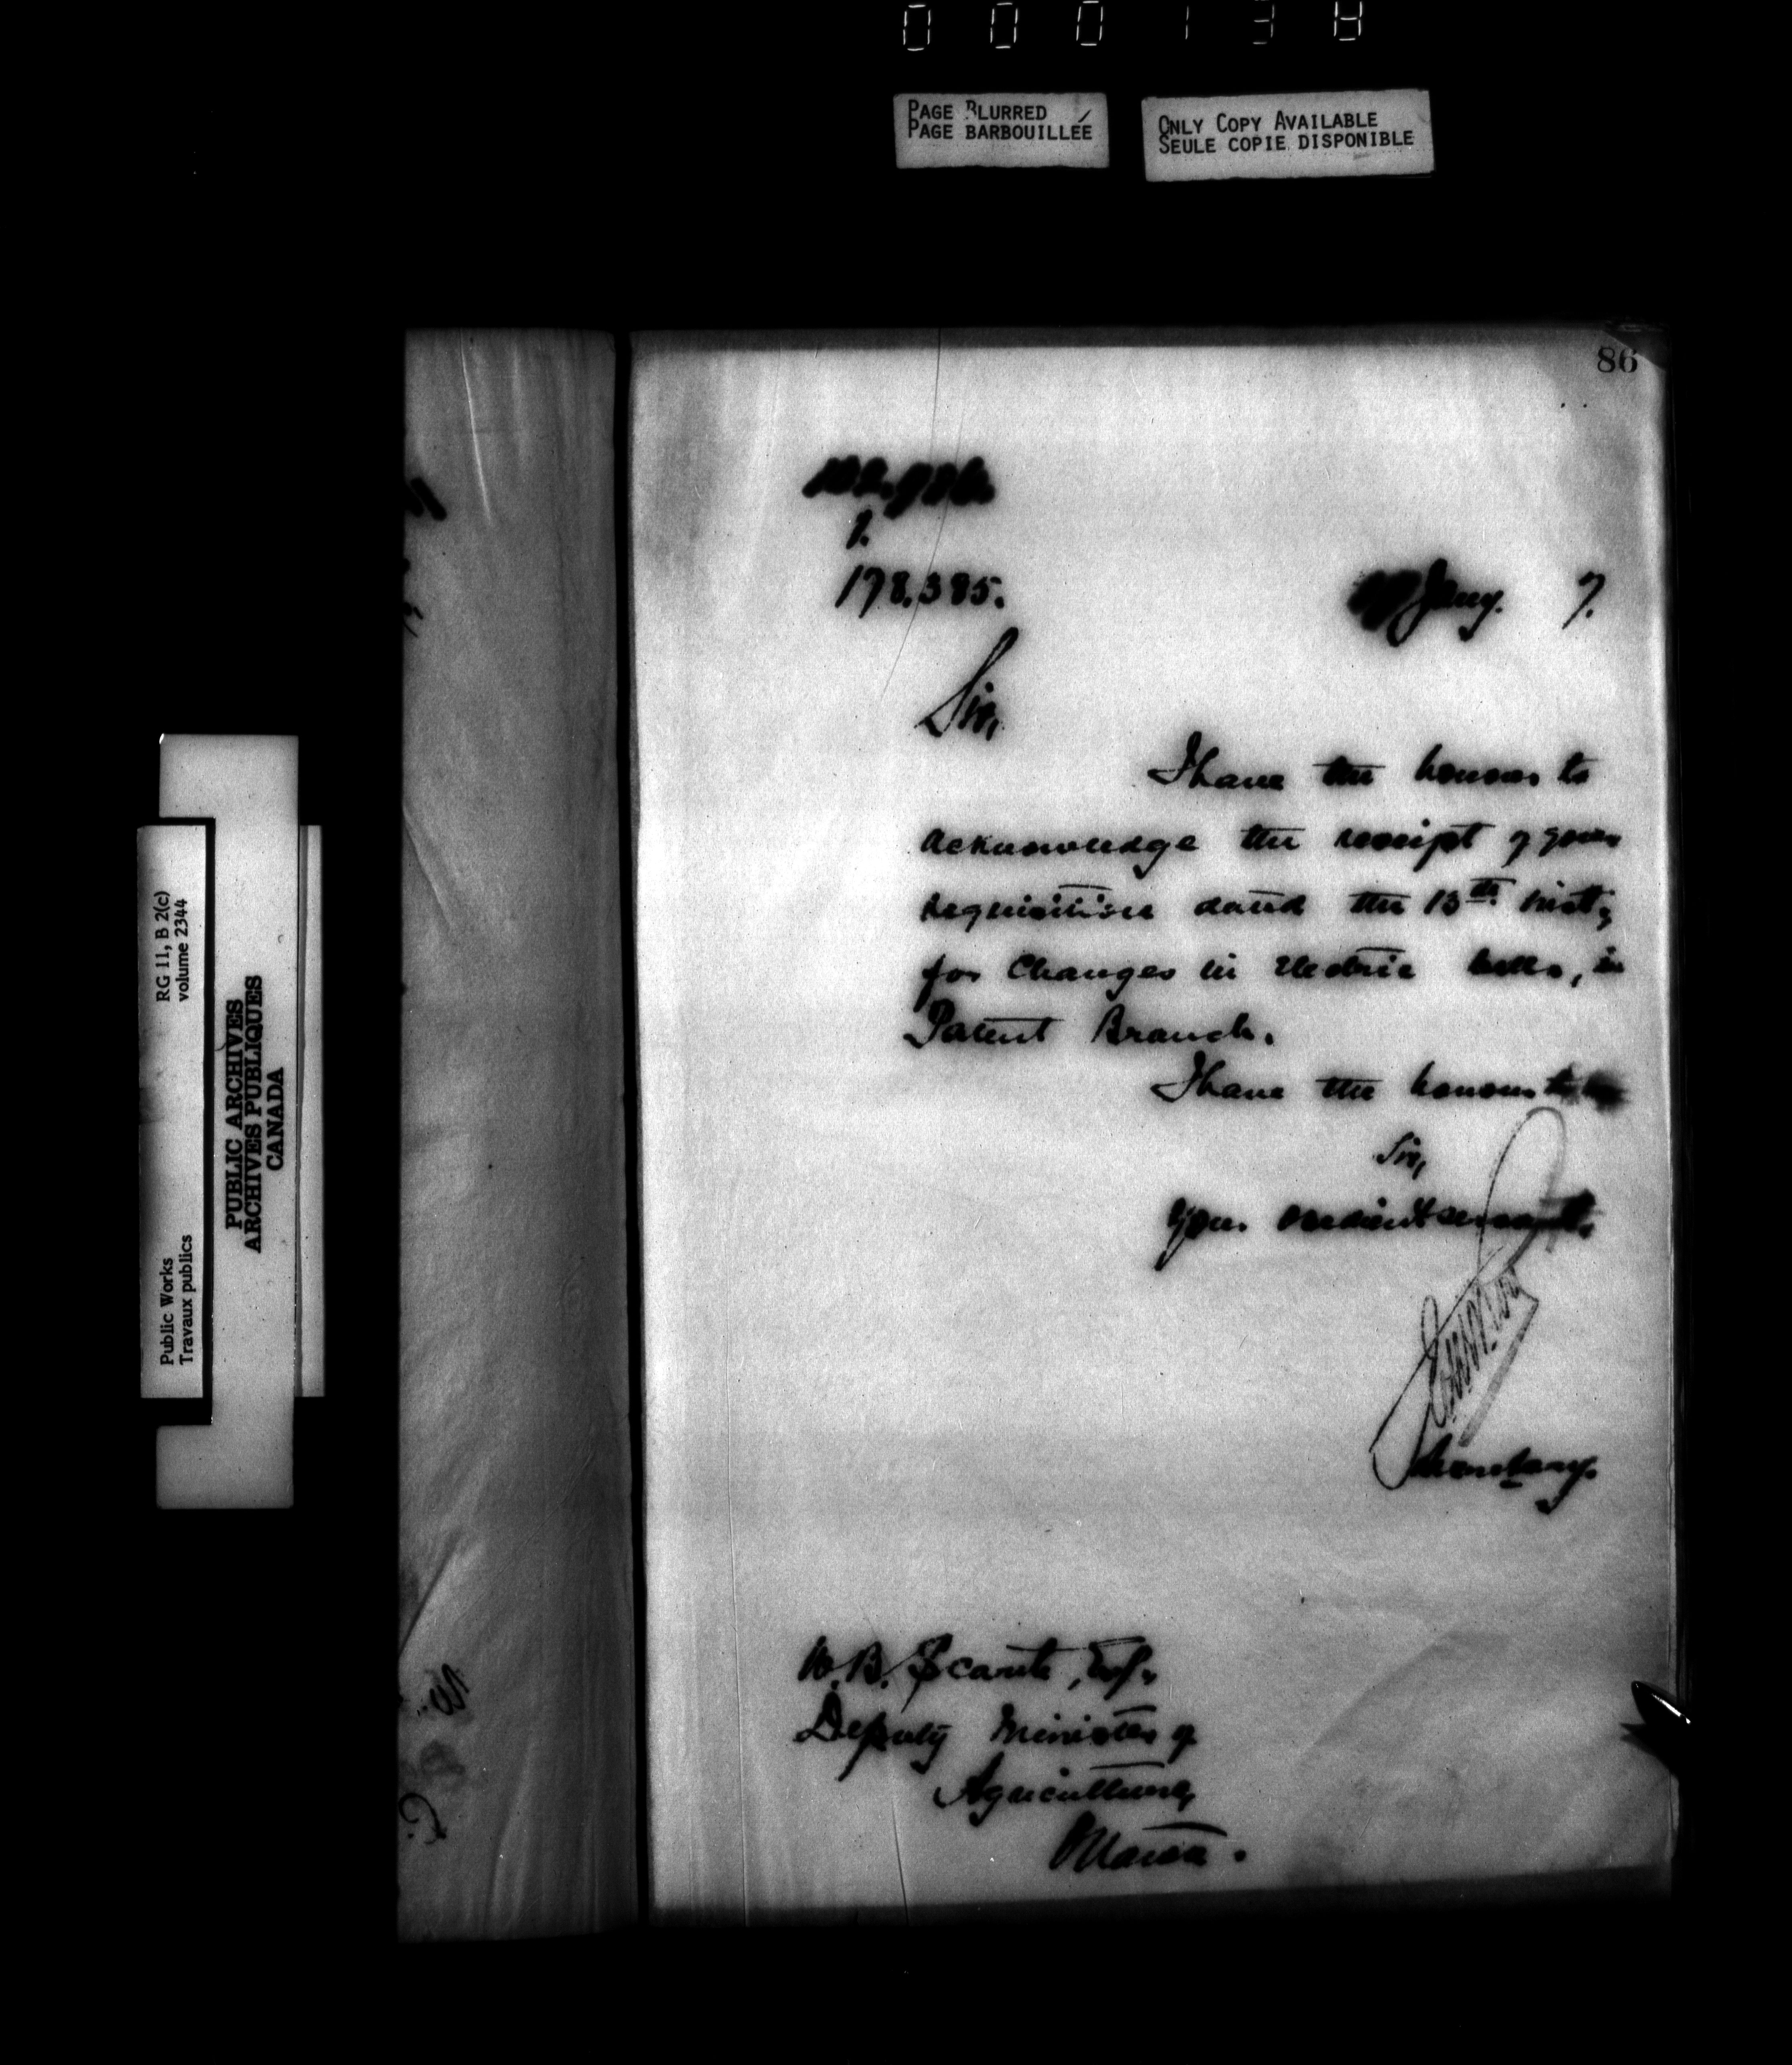 PAGE BLURRED
PAGE BARBOUILLÉE
ONLY COPY AVAILABLE
SEULE COPIE DISPONIBLE
RG 11, B 2(c)
volume 2344
Public Works
Travaux publics
PUBLIC ARCHIVES
ARCHIVES PUBLIQUES
CANADA
86
1.
178.385.
Jany. 7.
Sir,
I have the honour to
acknowledge the receipt of your
requisition dated the 13th inst,
for Changes in Electric bells, in
Patent Branch.
I have the honour to be
Sir,
Your obedient servant.
Secretary.
W. B. Scarth, Esq.
Deputy Minister of
Agriculture,
Ottawa.